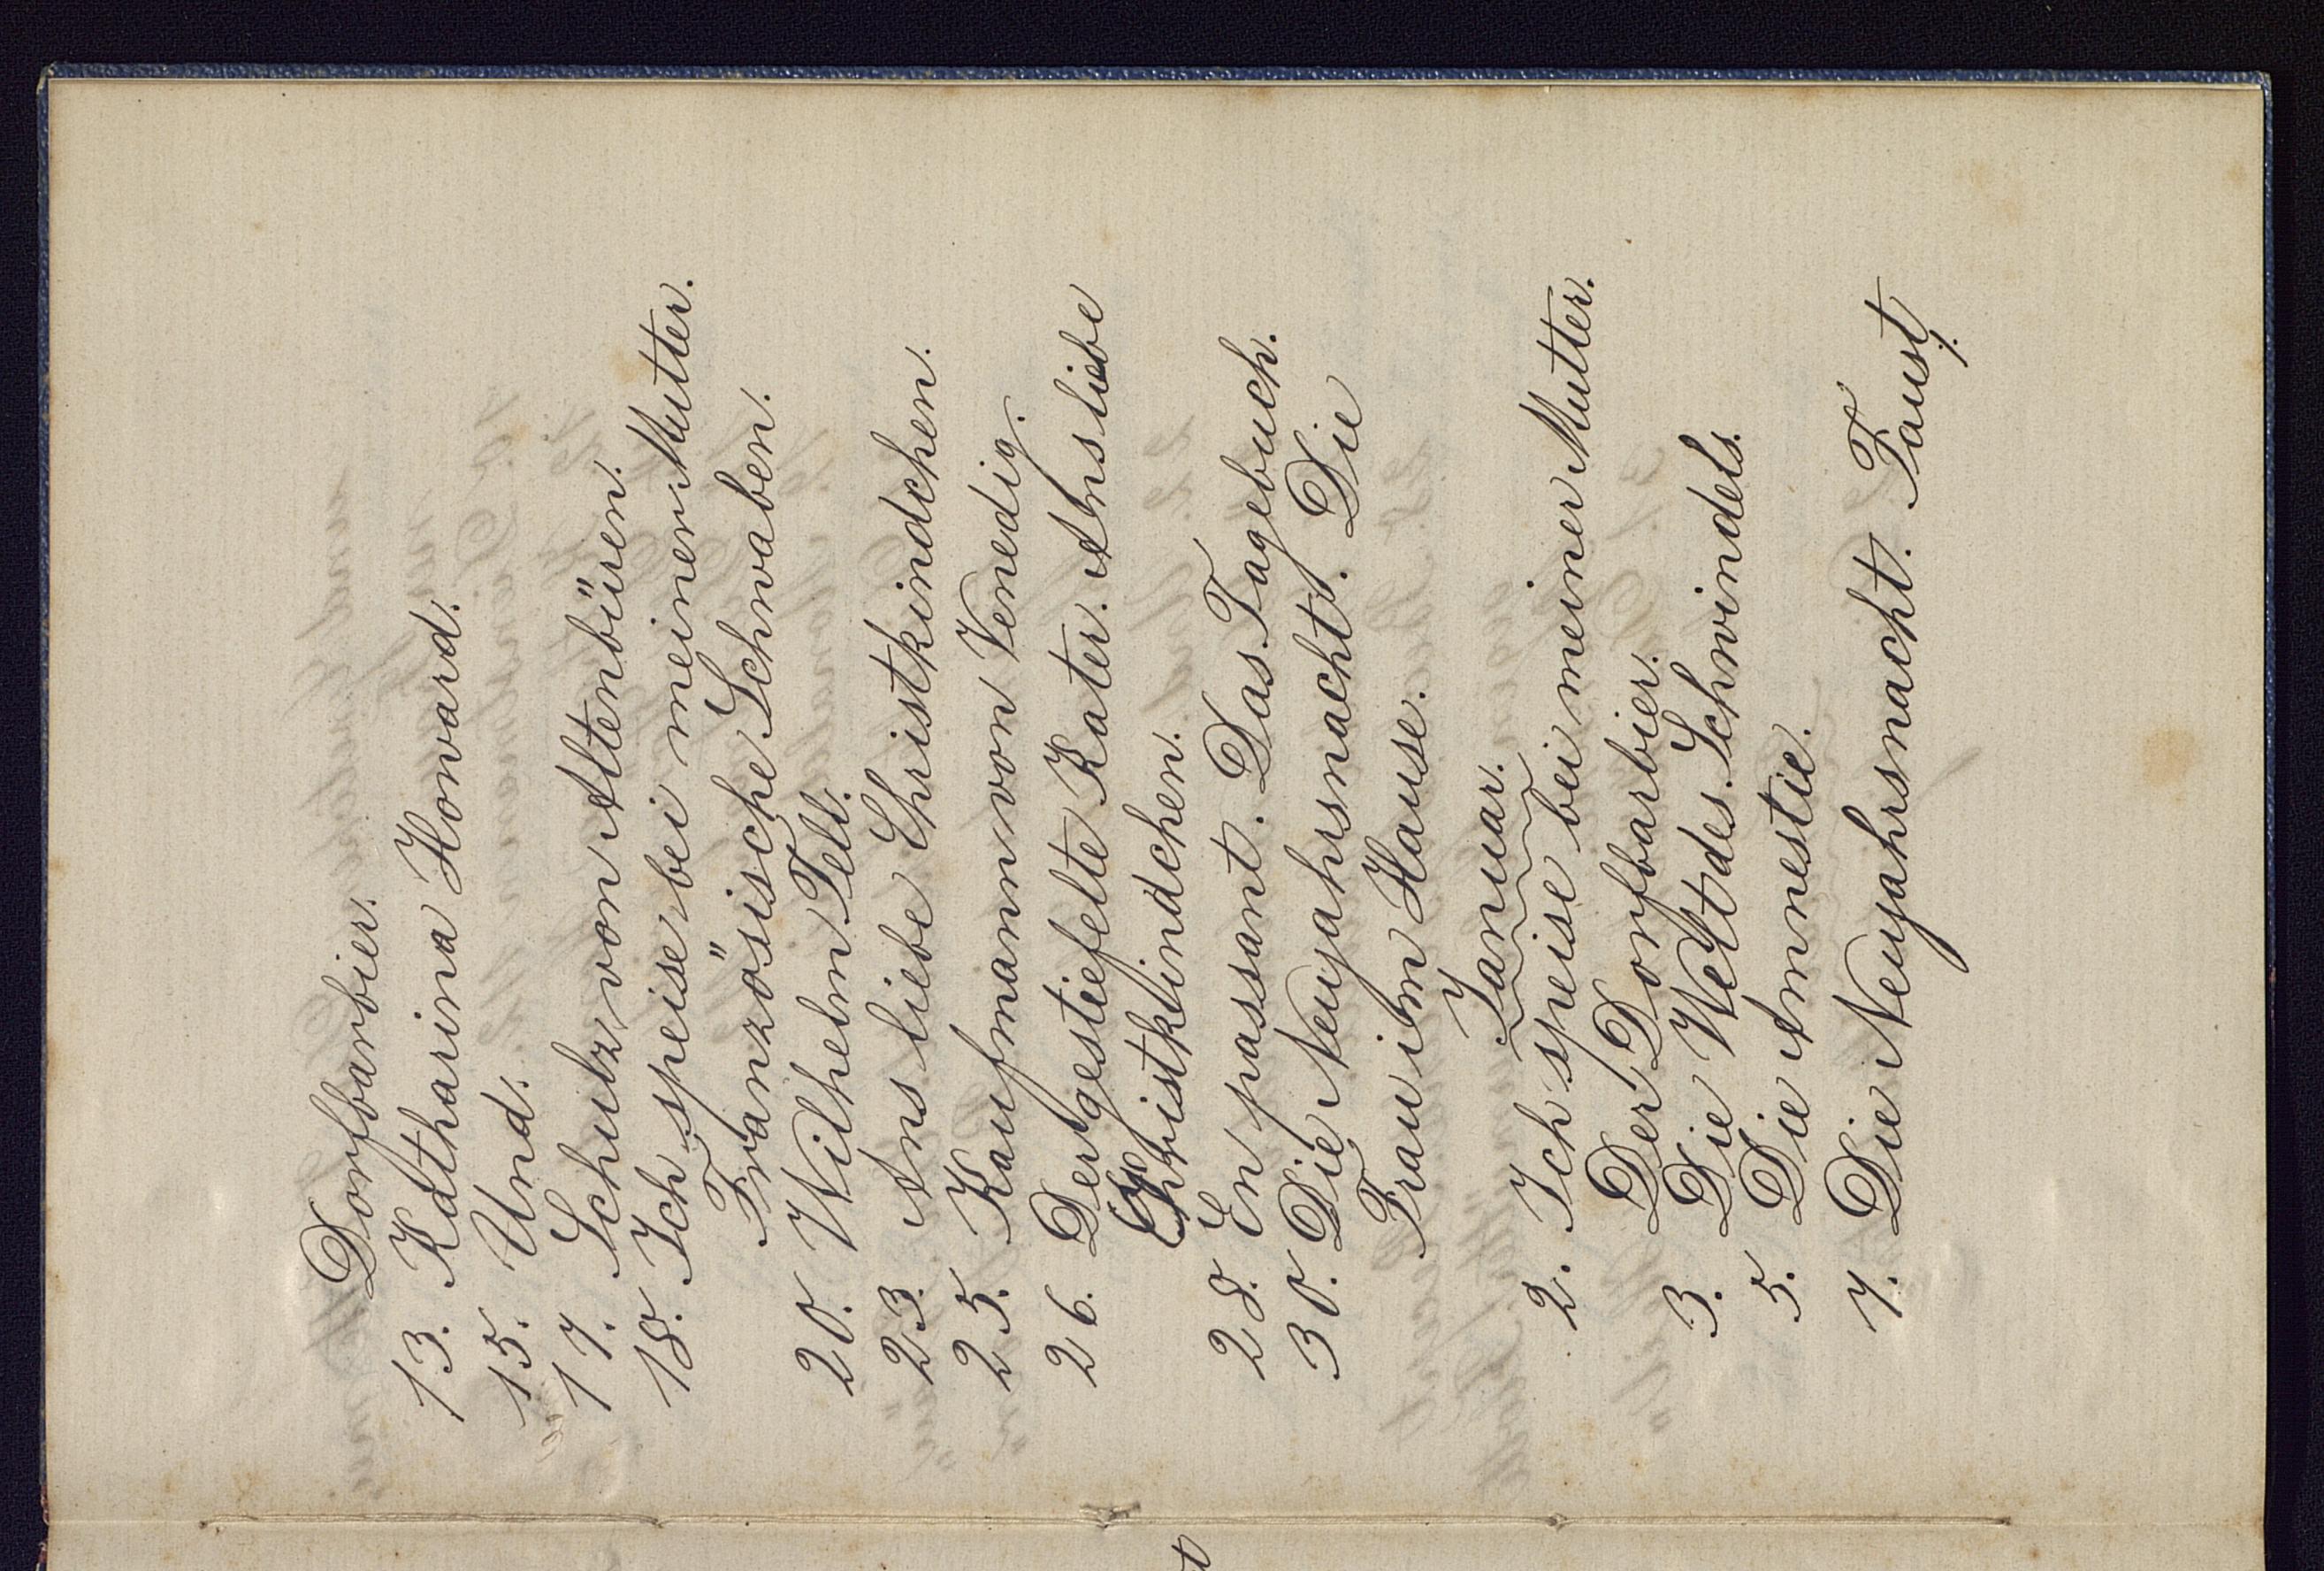 Dorfbarbier.
13. Katharina Howard.
15. Und.
17. Schulz von Altenbüren.
18. Ich speise bei meiner Mutter.
Französische Schwaben.
20. Wilhelm Tell.
23. Ans liebe Christkindchen.
25. Kaufmann von Venedig.
26. Der gestiefelte Kater. Ans liebe
Christkindchen.
28. En passant. Das Tagebuch.
30. Die Neujahrsnacht. Die
Frau im Hause.
Januar.
2. Ich speise bei meiner Mutter.
Der Dorfbarbier.
3. Die Welt des Schwindels.
5. Die Amnestie.
7. Die Neujahrsnacht. Faust